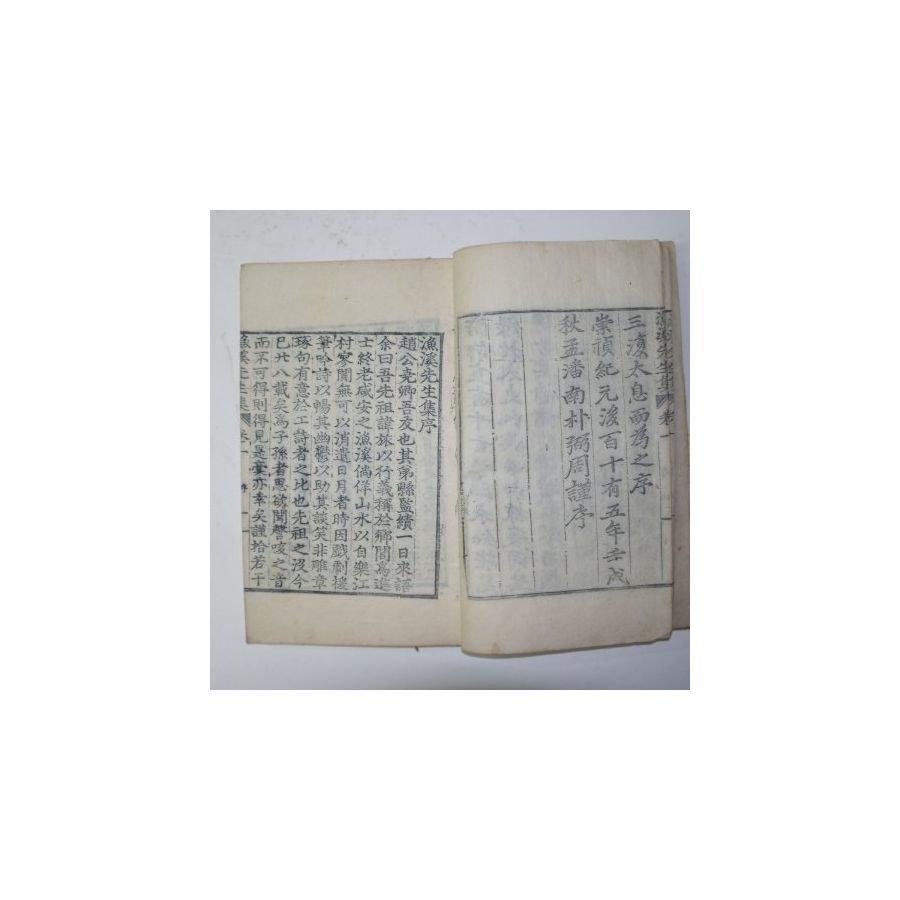 三復太息而爲之序
崇禎紀元後百十有五年壬戌
秋孟潘南朴弼周謹序
漁溪先生集序
趙公堯卿吾友也其弟縣監績一日來語
余曰吾先祖諱旅以行義稱於鄕閭爲進
士終老咸安之漁溪倘佯山水以自樂江
村寥闃無可以消遣日月者時因戲劇援
筆吟詩以暢其幽鬱以助其談笑非雕章
琢句有意於工詩者之比也先祖之沒今
已廿八載矣爲子孫者思欲聞謦咳之音
而不可得則得見是藁亦幸矣謹拾若干
漁溪先生集 卷一 序 一